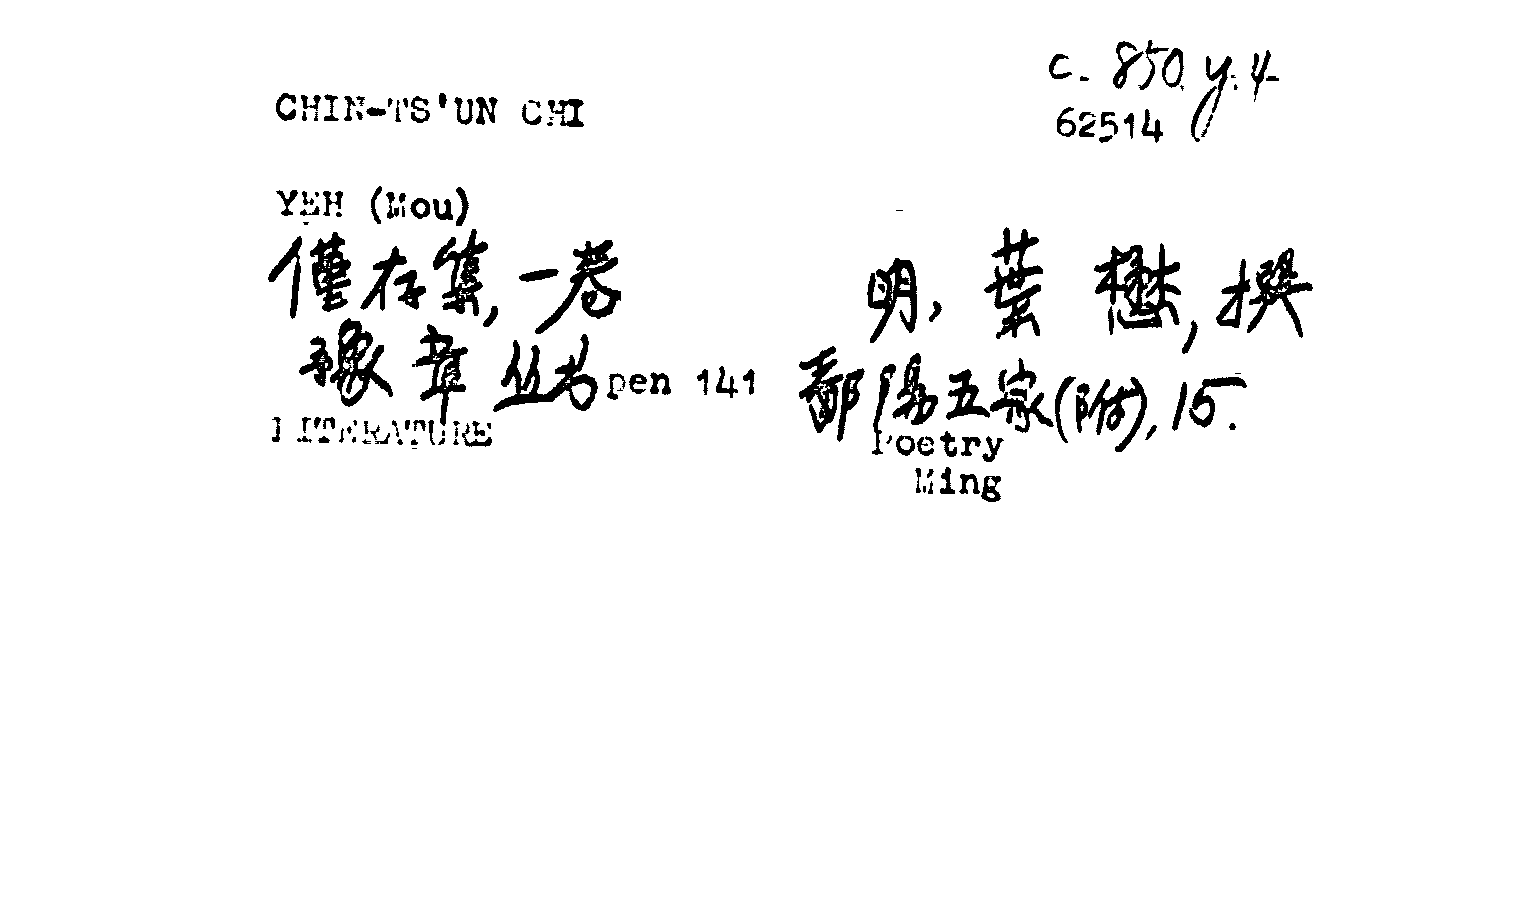 c. 850. y. 4
CHIN-TS'UN CHI
62514
YEH (Mou)
僅存集, 一卷 明, 葉 懋, 撰
豫章丛书 pen 141 鄱陽五家(附), 15.
LITERATURE Poetry
Ming